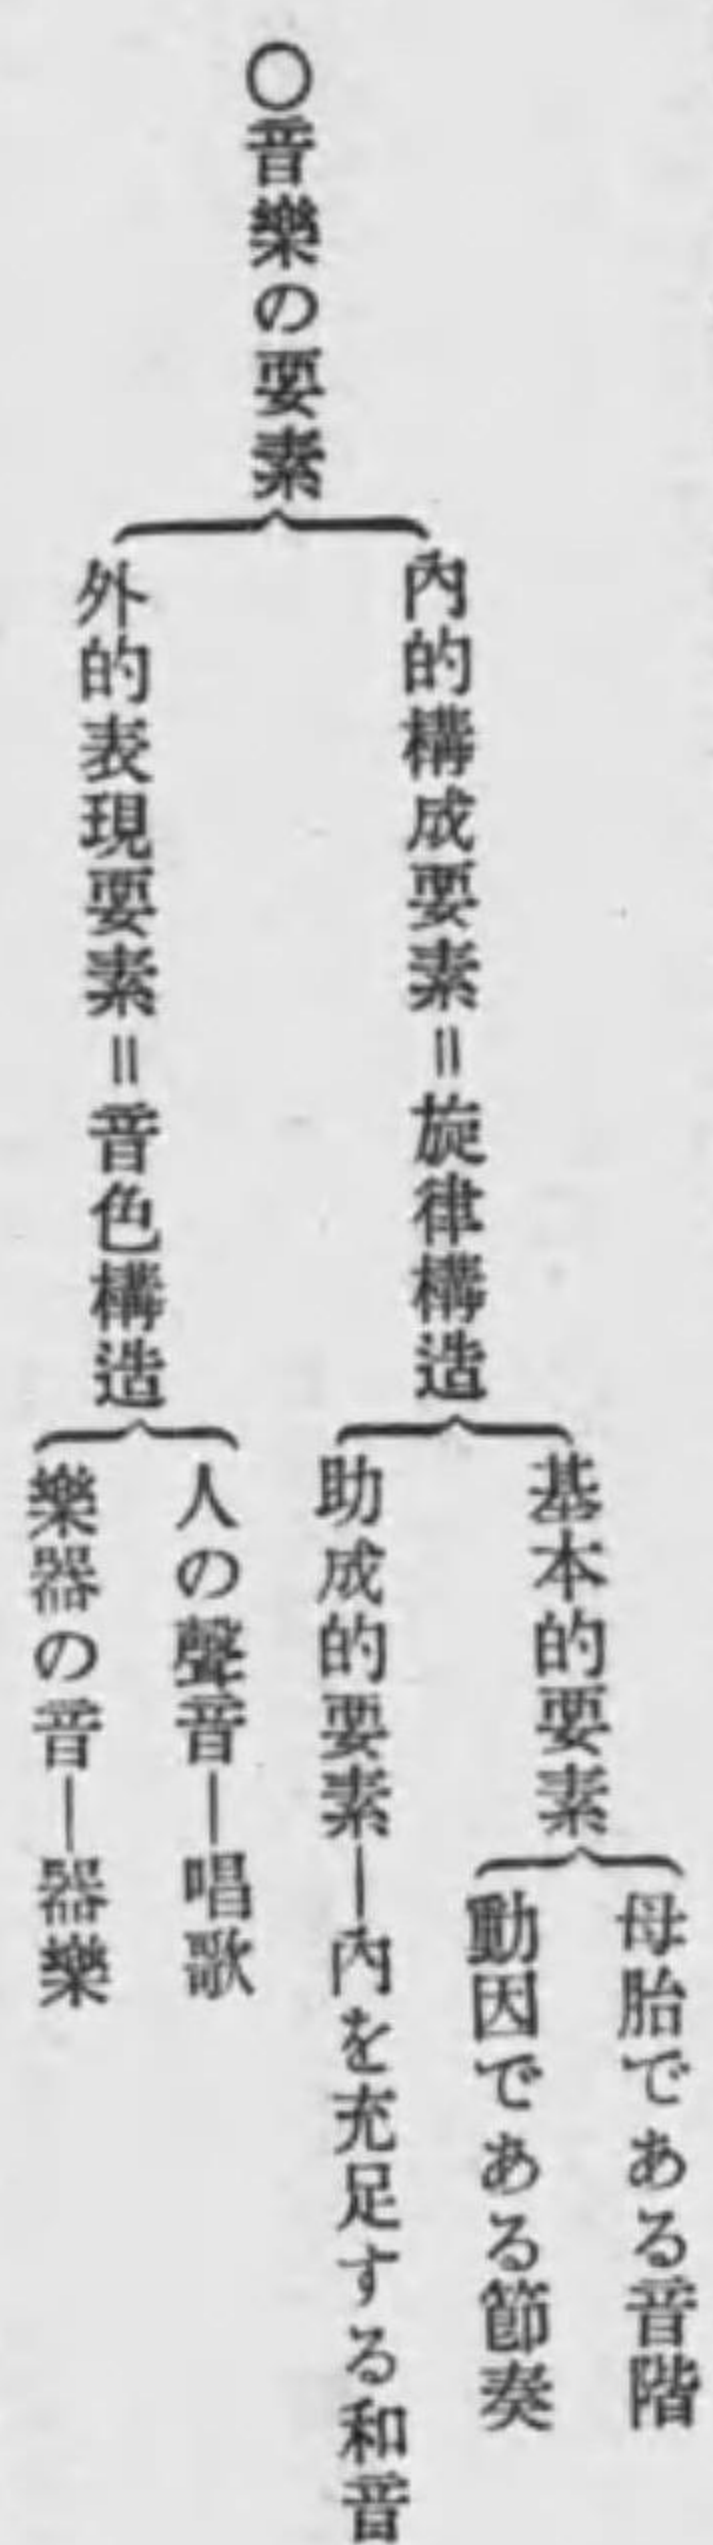 〇音樂の要素
內的構成要素＝旋律構造
基本的要素
母胎である音階
動因である節奏
助成的要素—內を充足する和音
外的表現要素＝音色構造
人の聲音—唱歌
樂器の音—器樂